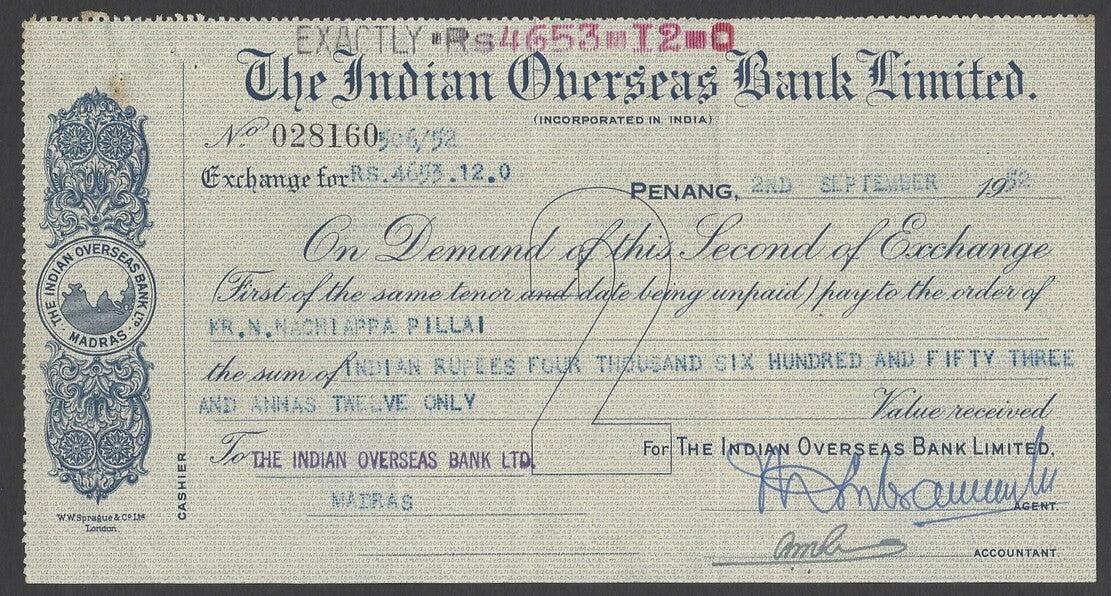 EXACTLY Rs4653-12-0
The Indian Overseas Bank Limited.
(INCORPORATED IN INDIA)
No 028160 506/52
Exchange for RS.4653.12.0
PENANG, 2RD SEPTEMBER 1952
On Demand of this Second of Exchange
(First of the same tenor and date being unpaid) pay to the order of
MR.N.NACHIAPPA PILLAI
the sum of INDIAN RUPEES FOUR THOUSAND SIX HUNDRED AND FIFTY THREE
AND ANNAS TWELVE ONLY
Value received
To THE INDIAN OVERSEAS BANK LTD.
MADRAS
For THE INDIAN OVERSEAS BANK LIMITED,
AGENT.
ACCOUNTANT
2
THE INDIAN OVERSEAS BANK LTD.
MADRAS
CASHIER
W.W. Sprague & Co. Ltd.
London.